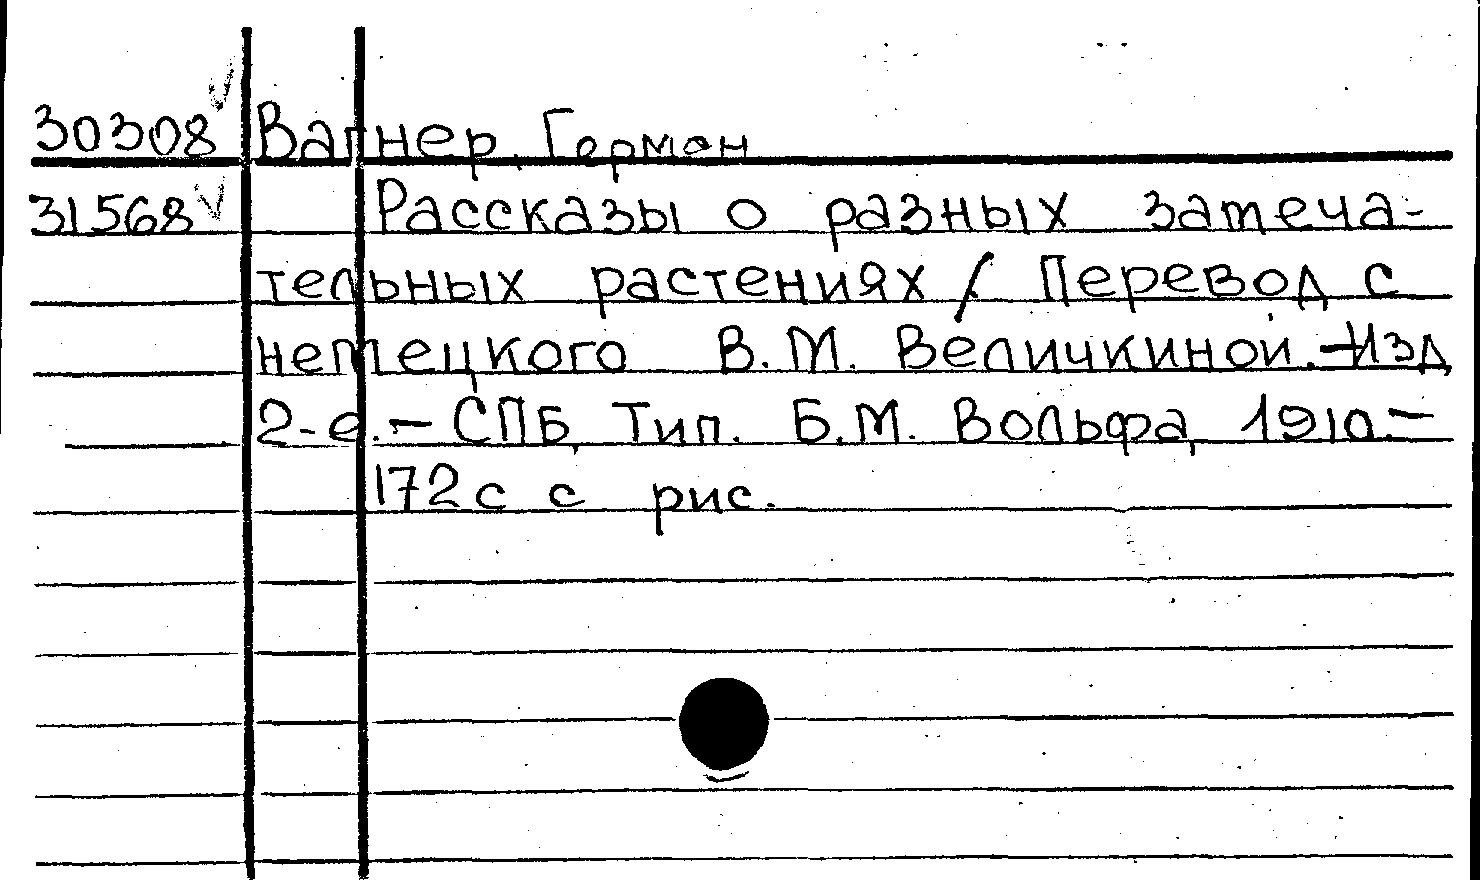 30308 Вагнер, Герман
31568 Рассказы о разных замеча-
тельных растениях / Перевод с
немецкого В.М. Величкиной.-Изд
2-е.- СПБ, Тип. Б.М. Вольфа, 1910.-
172 с с рис.